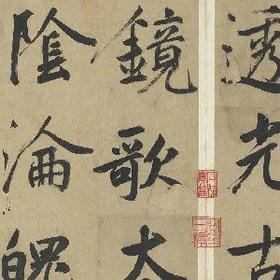 透光古
鏡歌太
陰淪魄